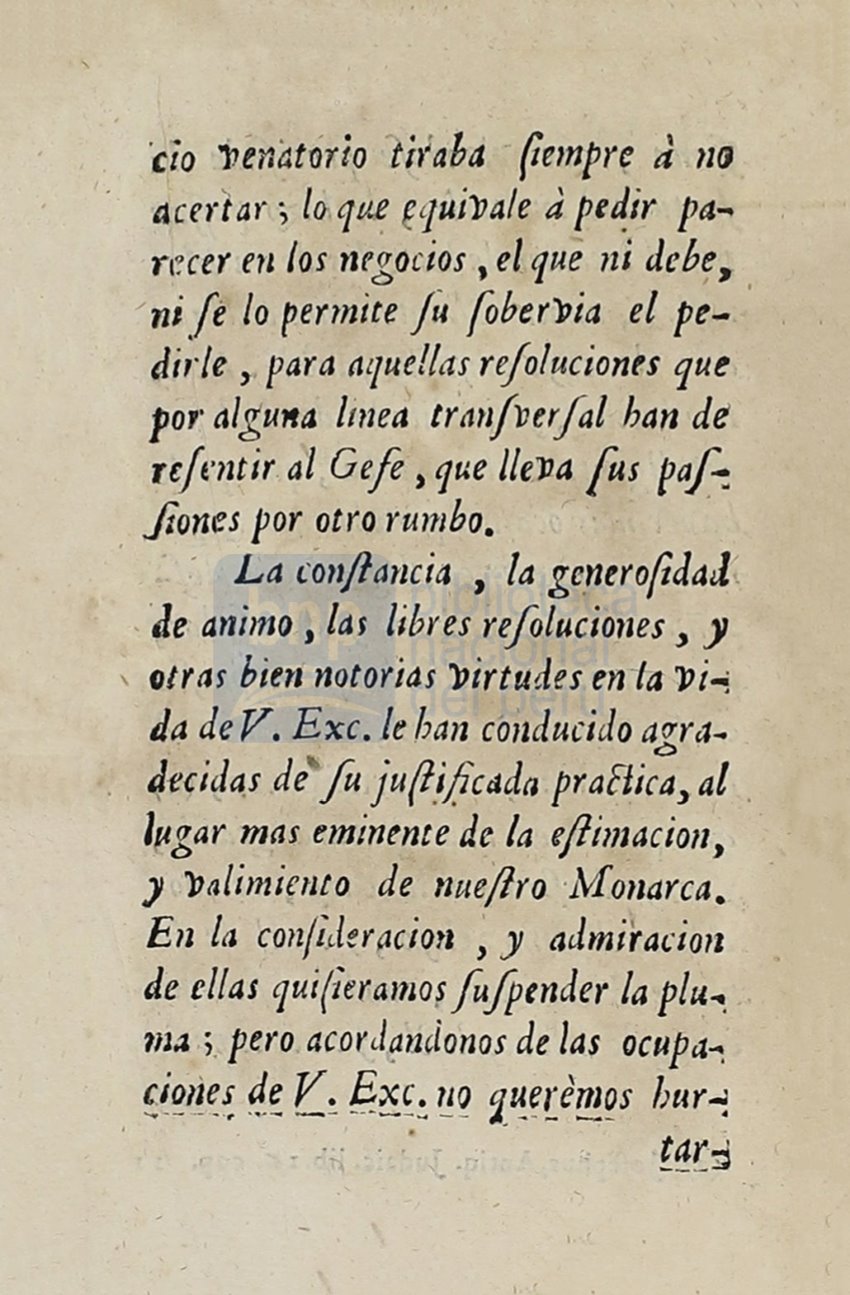 cio venatorio tiraba ſiempre à no
acertar; lo que equivale à pedir pa-
recer en los negocios, el que ni debe,
ni ſe lo permite ſu ſobervia el pe-
dirle, para aquellas reſoluciones que
por alguna linea tranſverſal han de
reſentir al Gefe, que lleva ſus paſ-
ſiones por otro rumbo.
La conſtancia, la generoſidad
de animo, las libres reſoluciones, y
otras bien notorias virtudes en la vi-
da de V. Exc. le han conducido agra-
decidas de ſu juſtificada practica, al
lugar mas eminente de la eſtimacion,
y valimiento de nueſtro Monarca.
En la conſideracion, y admiracion
de ellas quiſieramos ſuſpender la plu-
ma; pero acordandonos de las ocupa-
ciones de V. Exc. no querèmos hur-
tar-